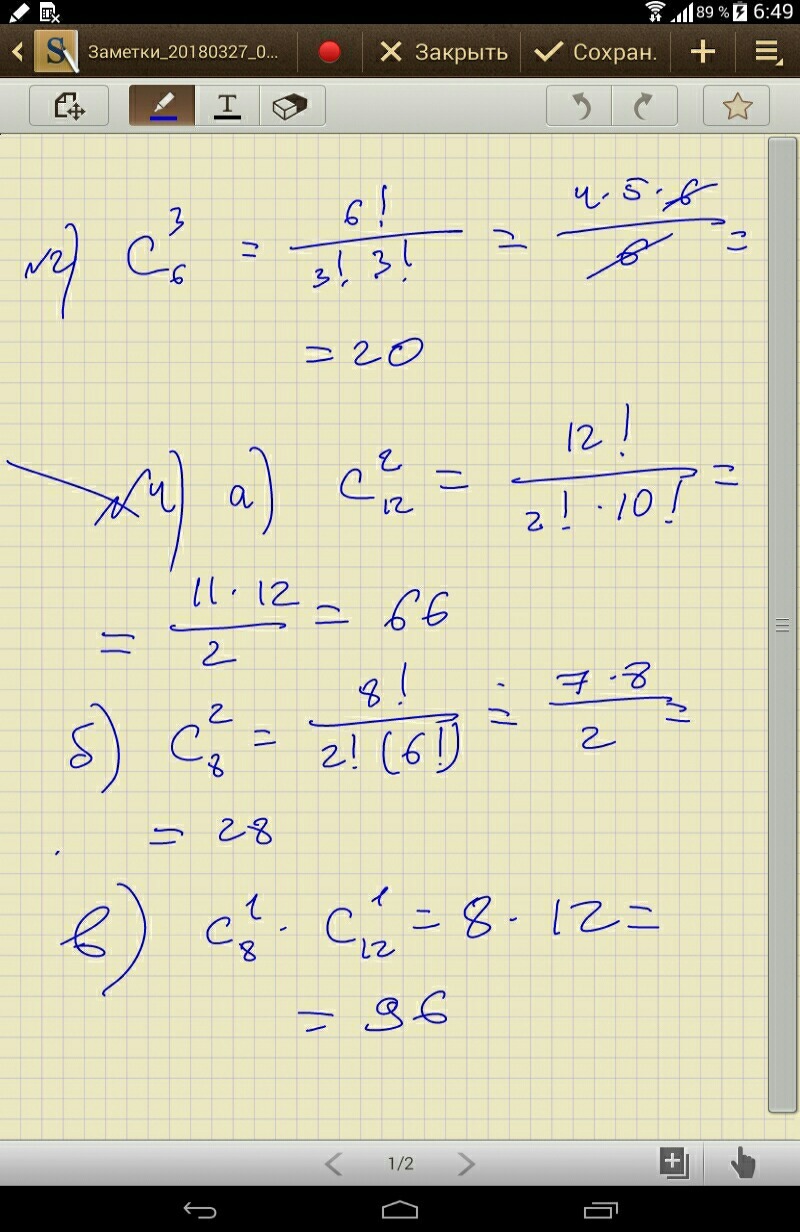 89 % 6:49
Заметки_20180327_0... Закрыть Сохран.
T
№2) C₆³ = 6! / (3! 3!) = (4 · 5 · 6) / 6 =
= 20
№4) а) C₁₂² = 12! / (2! · 10!) =
= (11 · 12) / 2 = 66
б) C₈² = 8! / (2! (6!)) = (7 · 8) / 2 =
= 28
в) C₈¹ · C₁₂¹ = 8 · 12 =
= 96
1/2